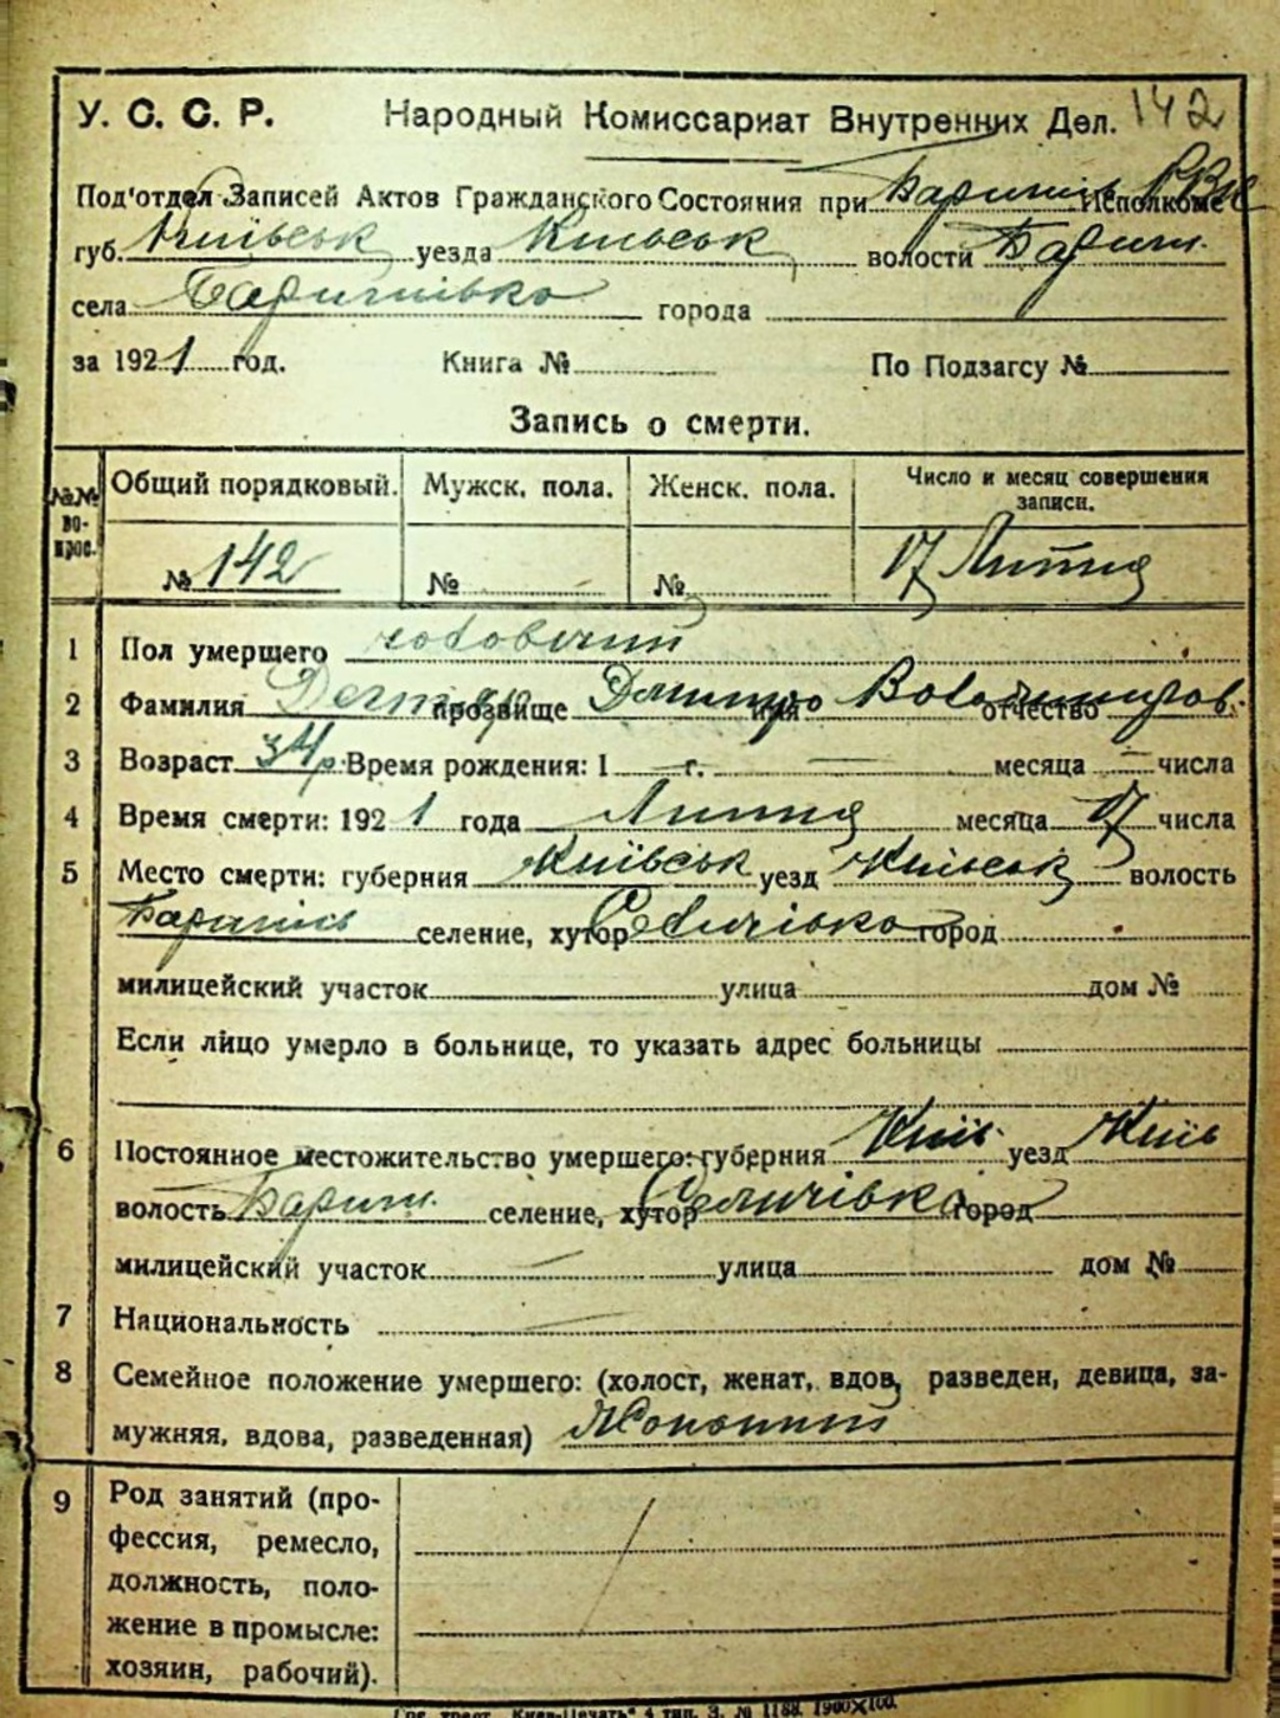 142
У. С. С. Р. Народный Комиссариат Внутренних Дел.
Под'отдел Записей Актов Гражданского Состояния при Исполкоме
губ. Київськ уезда Київськ волости Бариш.
села города
за 1921 год. Книга № По Подзагсу №
Запись о смерти.
№№ во- прос. Общий порядковый. Мужск. пола. Женск. пола. Число и месяц совершения записи.
№ 142 № № 17 Липня
1 Пол умершего чоловічий
2 Фамилия прозвище Дмитро имя Володимиров. отчество
3 Возраст 34 р. Время рождения: 1 — г. — месяца — числа
4 Время смерти: 1921 года Липня месяца 17 числа
5 Место смерти: губерния Київськ уезд Київськ волость
селение, хутор Селичівка город
милицейский участок улица дом №
Если лицо умерло в больнице, то указать адрес больницы
6 Постоянное местожительство умершего: губерния Київ. уезд Київ
волость Бариш. селение, хутор Селичівка город
милицейский участок улица дом №
7 Национальность
8 Семейное положение умершего: (холост, женат, вдов, разведен, девица, за-
мужняя, вдова, разведенная) Жонатий
9 Род занятий (про-
фессия, ремесло,
должность, поло-
жение в промысле:
хозяин, рабочий).
Гос. трест „Киев-Печать" 4 тип. З. № 1188. 1900×100.